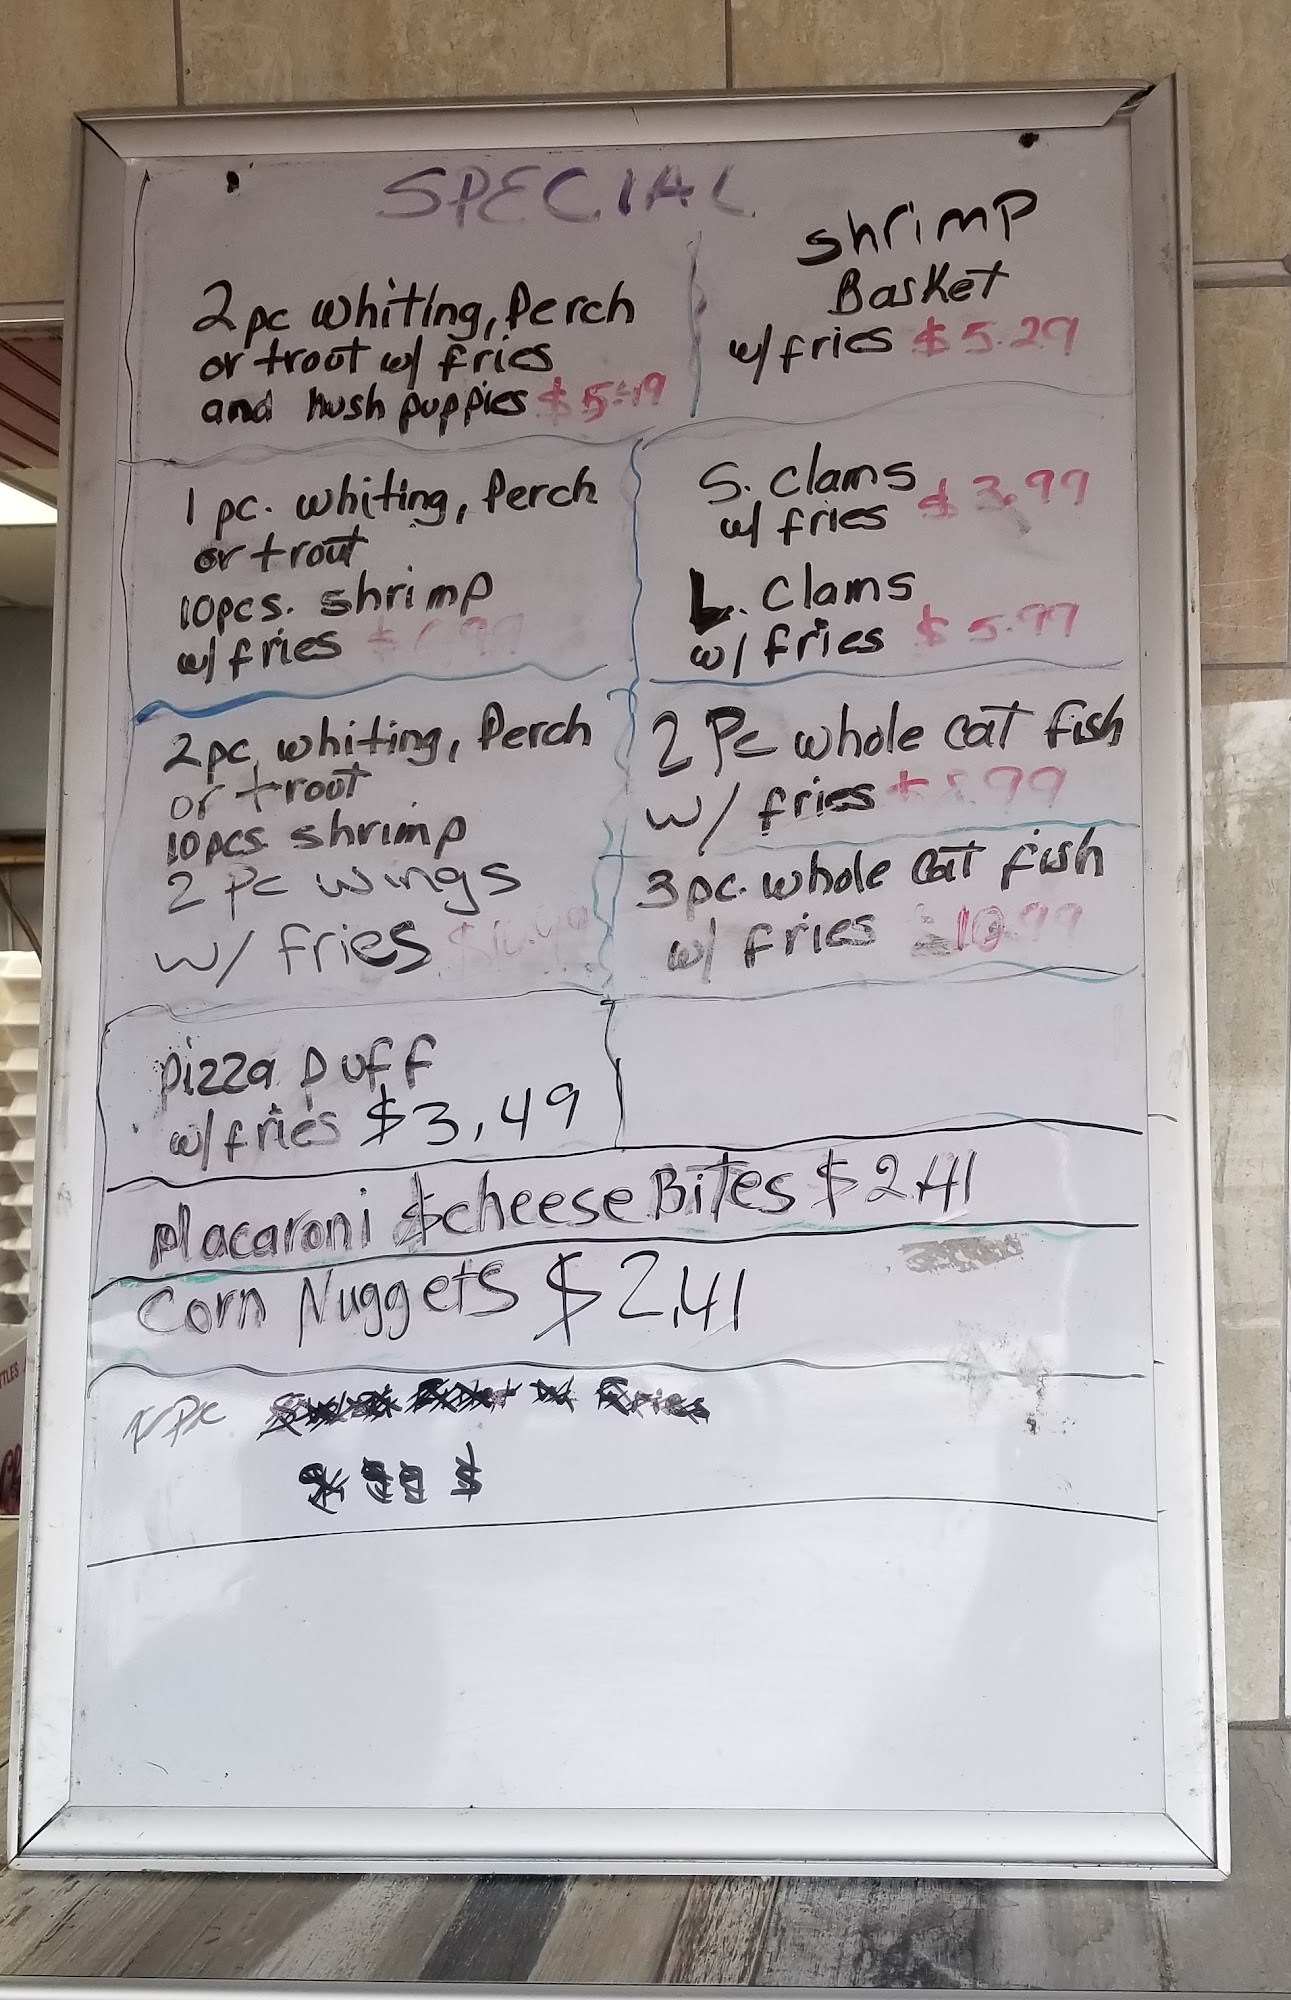 SPECIAL
2pc whiting, Perch
or trout w/ fries
and hush puppies $5.49
shrimp
Basket
w/fries $5.29
1 pc. whiting, Perch
or trout
10pcs. shrimp
w/fries $6.99
S. Clams
w/ fries $3.99
L. Clams
w/ fries $5.99
2pc. whiting, Perch
or trout
10pcs shrimp
2 Pc wings
w/ fries
2 Pc whole cat fish
w/ fries $8.99
3 pc. whole cat fish
w/ fries $10.99
pizza puff
w/fries $3,49
Macaroni $cheese Bites $2.41
Corn Nuggets $2,41